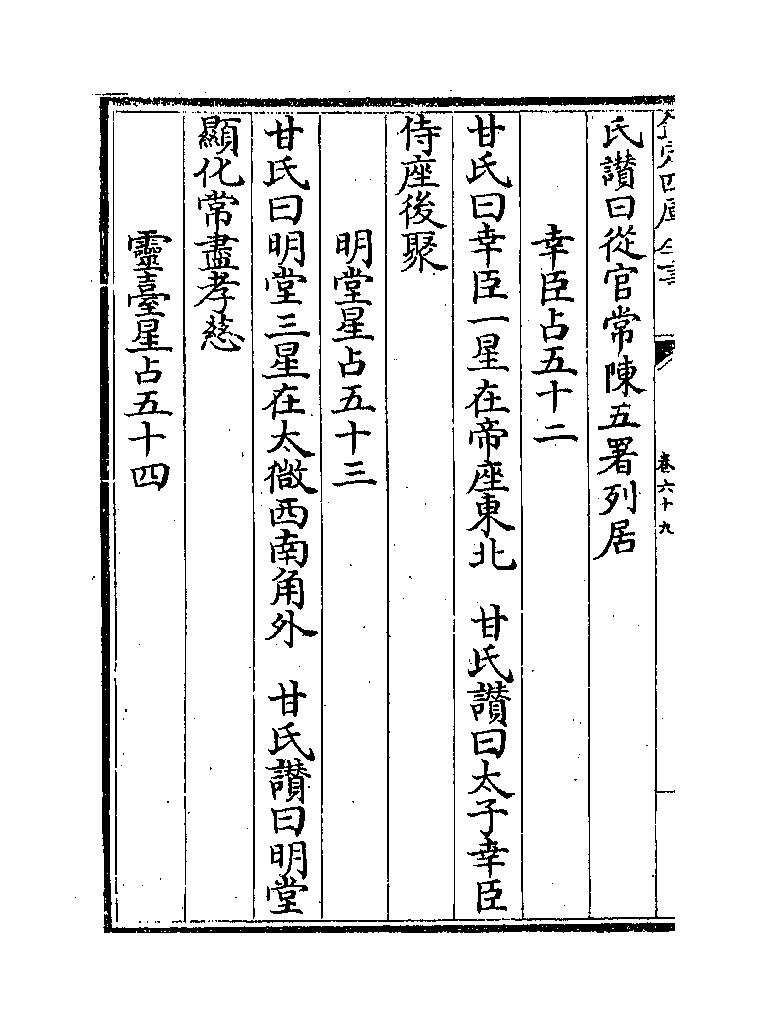 氏讃曰從官常陳五署列居
幸臣占五十二
甘氏曰幸臣一星在帝座東北　甘氏讃曰太子幸臣
侍座後聚
明堂星占五十三
甘氏曰明堂三星在太微西南角外　甘氏讃曰明堂
顯化常盡孝慈
靈臺星占五十四
卷六十九